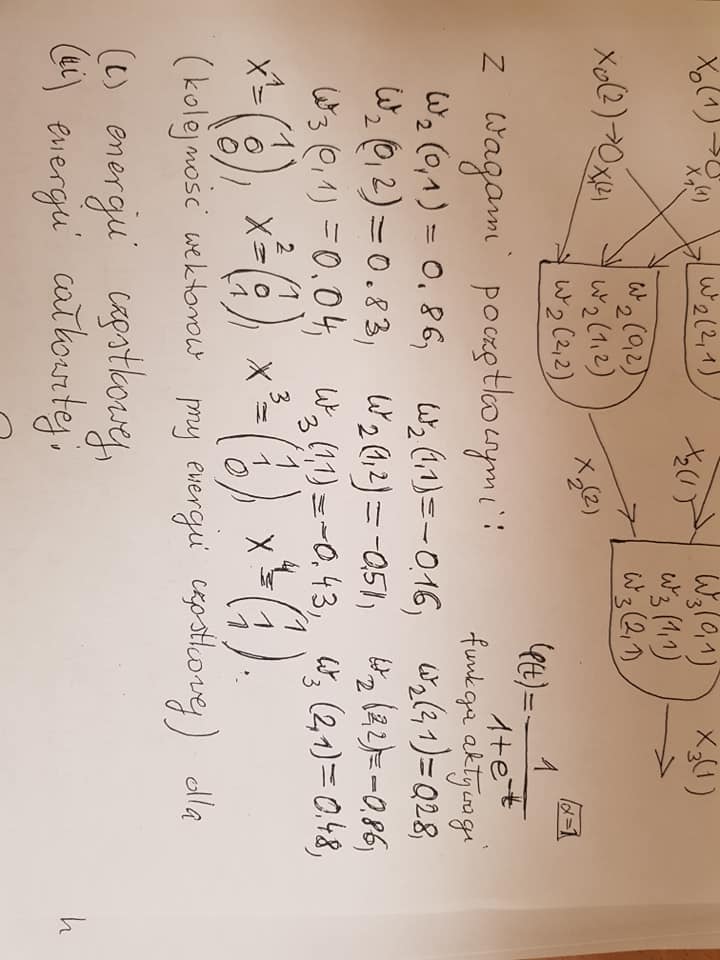 x₀(1) → O x₁(1) w₂(2,1) x₂(1) w₃(0,1) x₃(1)
w₃(1,1)
w₂(0,2) w₃(2,1)
x₀(2) → O x₁(2) w₂(1,2) x₂(2)
w₂(2,2)
α=1
φ(t) = 1 / (1+e^-t)
z wagami początkowymi:
funkcja aktywacji
w₂(0,1) = 0.86, w₂(1,1) = -0.16, w₂(2,1) = 0.28,
w₂(0,2) = 0.83, w₂(1,2) = -0.51, w₂(2,2) = -0.86,
w₃(0,1) = 0.04, w₃(1,1) = -0.43, w₃(2,1) = 0.48,
x¹ = (1 0 0), x² = (1 0 1), x³ = (1 1 0), x⁴ = (1 1 1).
(kolejność wektorów przy energii cząstkowej) dla
(i) energii cząstkowej,
(ii) energii całkowitej.
h